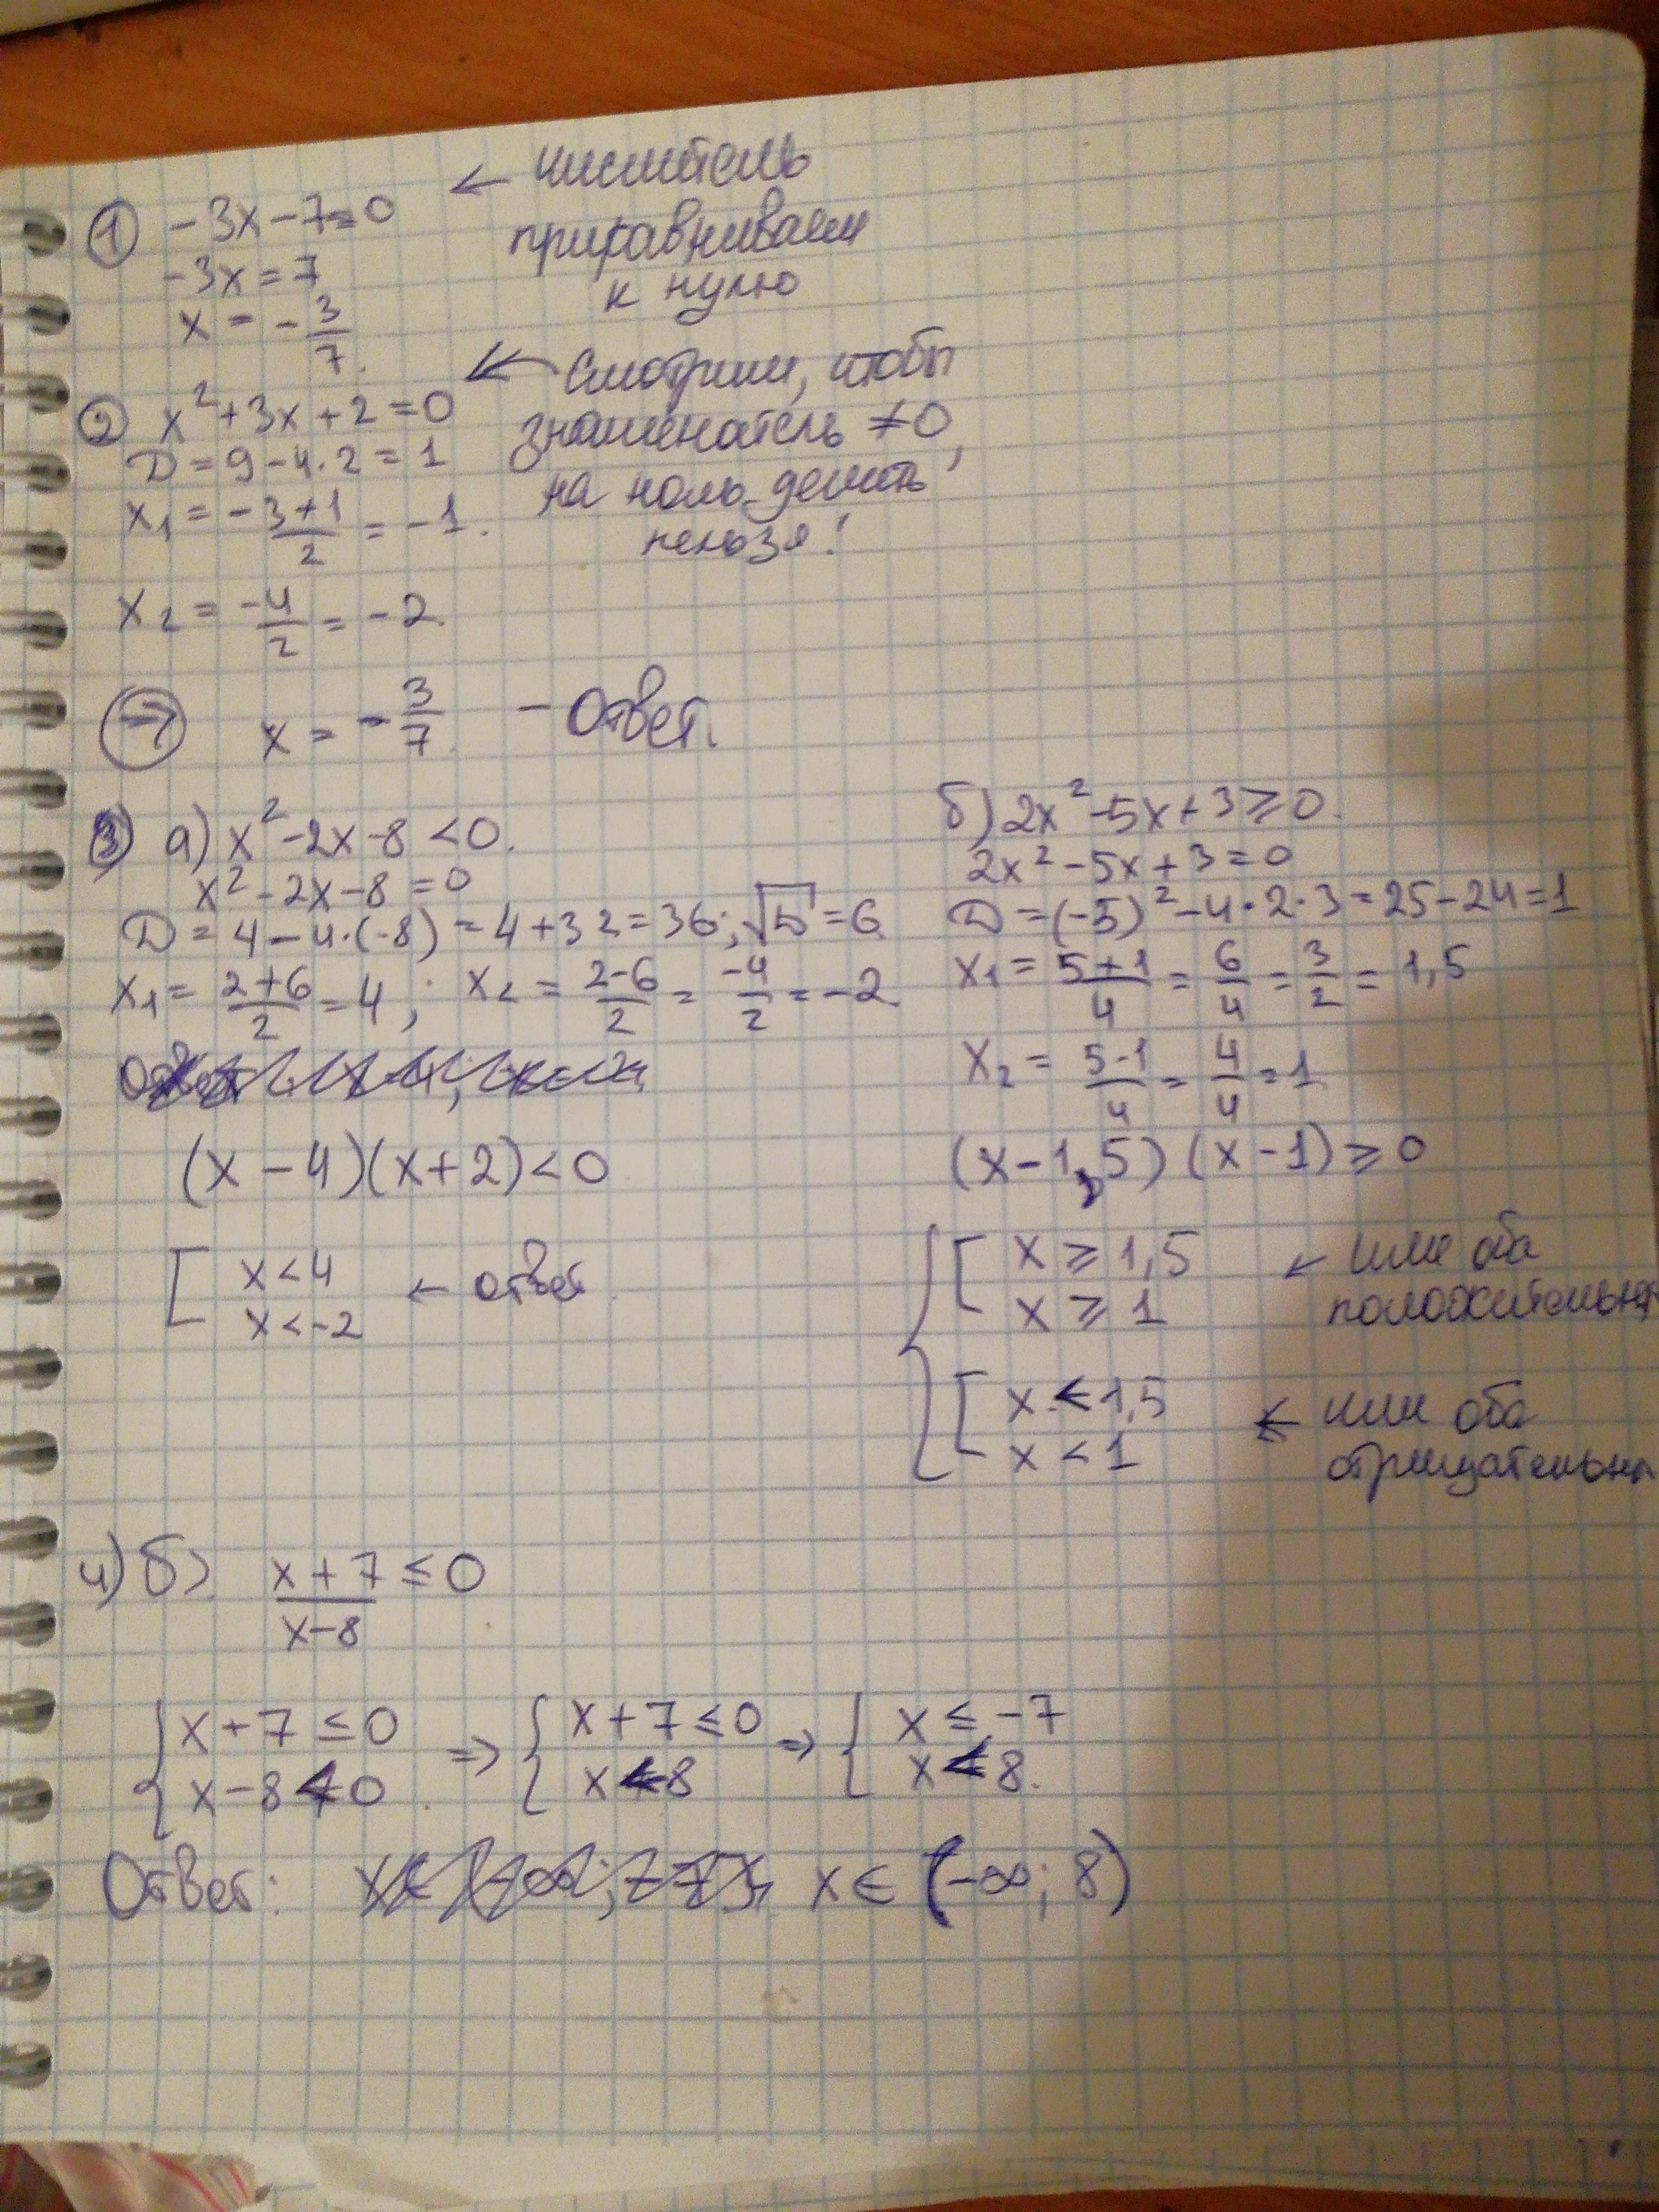 ① -3x-7=0 ← числитель
приравниваем
к нулю
-3x=7
x = -3/7.
② x²+3x+2=0 ← Смотрим, чтобы
знаменатель ≠0,
на ноль делить
нельзя!
D=9-4·2=1
x₁ = -3+1/2 = -1.
x₂ = -4/2 = -2.
⇒ x = -3/7 - Ответ.
3) а) x²-2x-8<0.
x²-2x-8=0
D=4-4·(-8)=4+32=36; √D=6
x₁ = 2+6/2 = 4; x₂ = 2-6/2 = -4/2 = -2.
(x-4)(x+2)<0
[ x<4
x<-2 ← ответ.
б) 2x²-5x+3≥0.
2x²-5x+3=0
D=(-5)²-4·2·3=25-24=1
x₁ = 5+1/4 = 6/4 = 3/2 = 1,5
x₂ = 5-1/4 = 4/4 = 1
(x-1,5)(x-1)≥0
{ [ x≥1,5 ← или оба
x≥1 положительны
[ x<1,5 ← или оба
x<1 отрицательны
4) б) x+7/x-8 ≤0
{ x+7≤0 ⇒ { x+7≤0 ⇒ { x≤-7
x-8<0. x<8 x<8.
Ответ: x∈(-∞; 8)